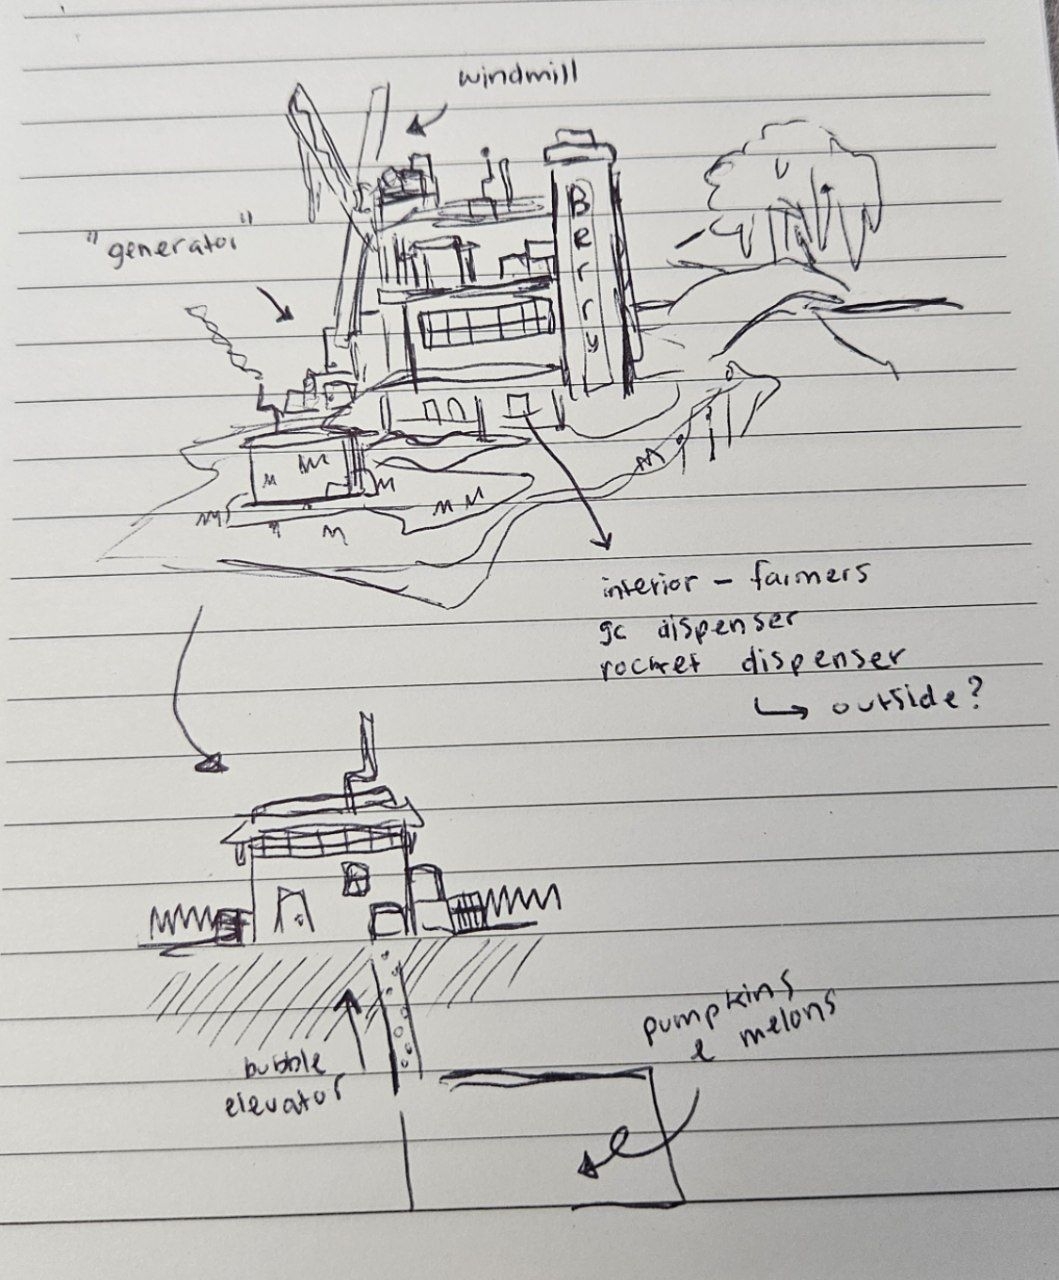 windmill
"generator"
Berry
interior - farmers
gc dispenser
rocket dispenser
↳ outside?
pumpkins
& melons
bubble
elevator